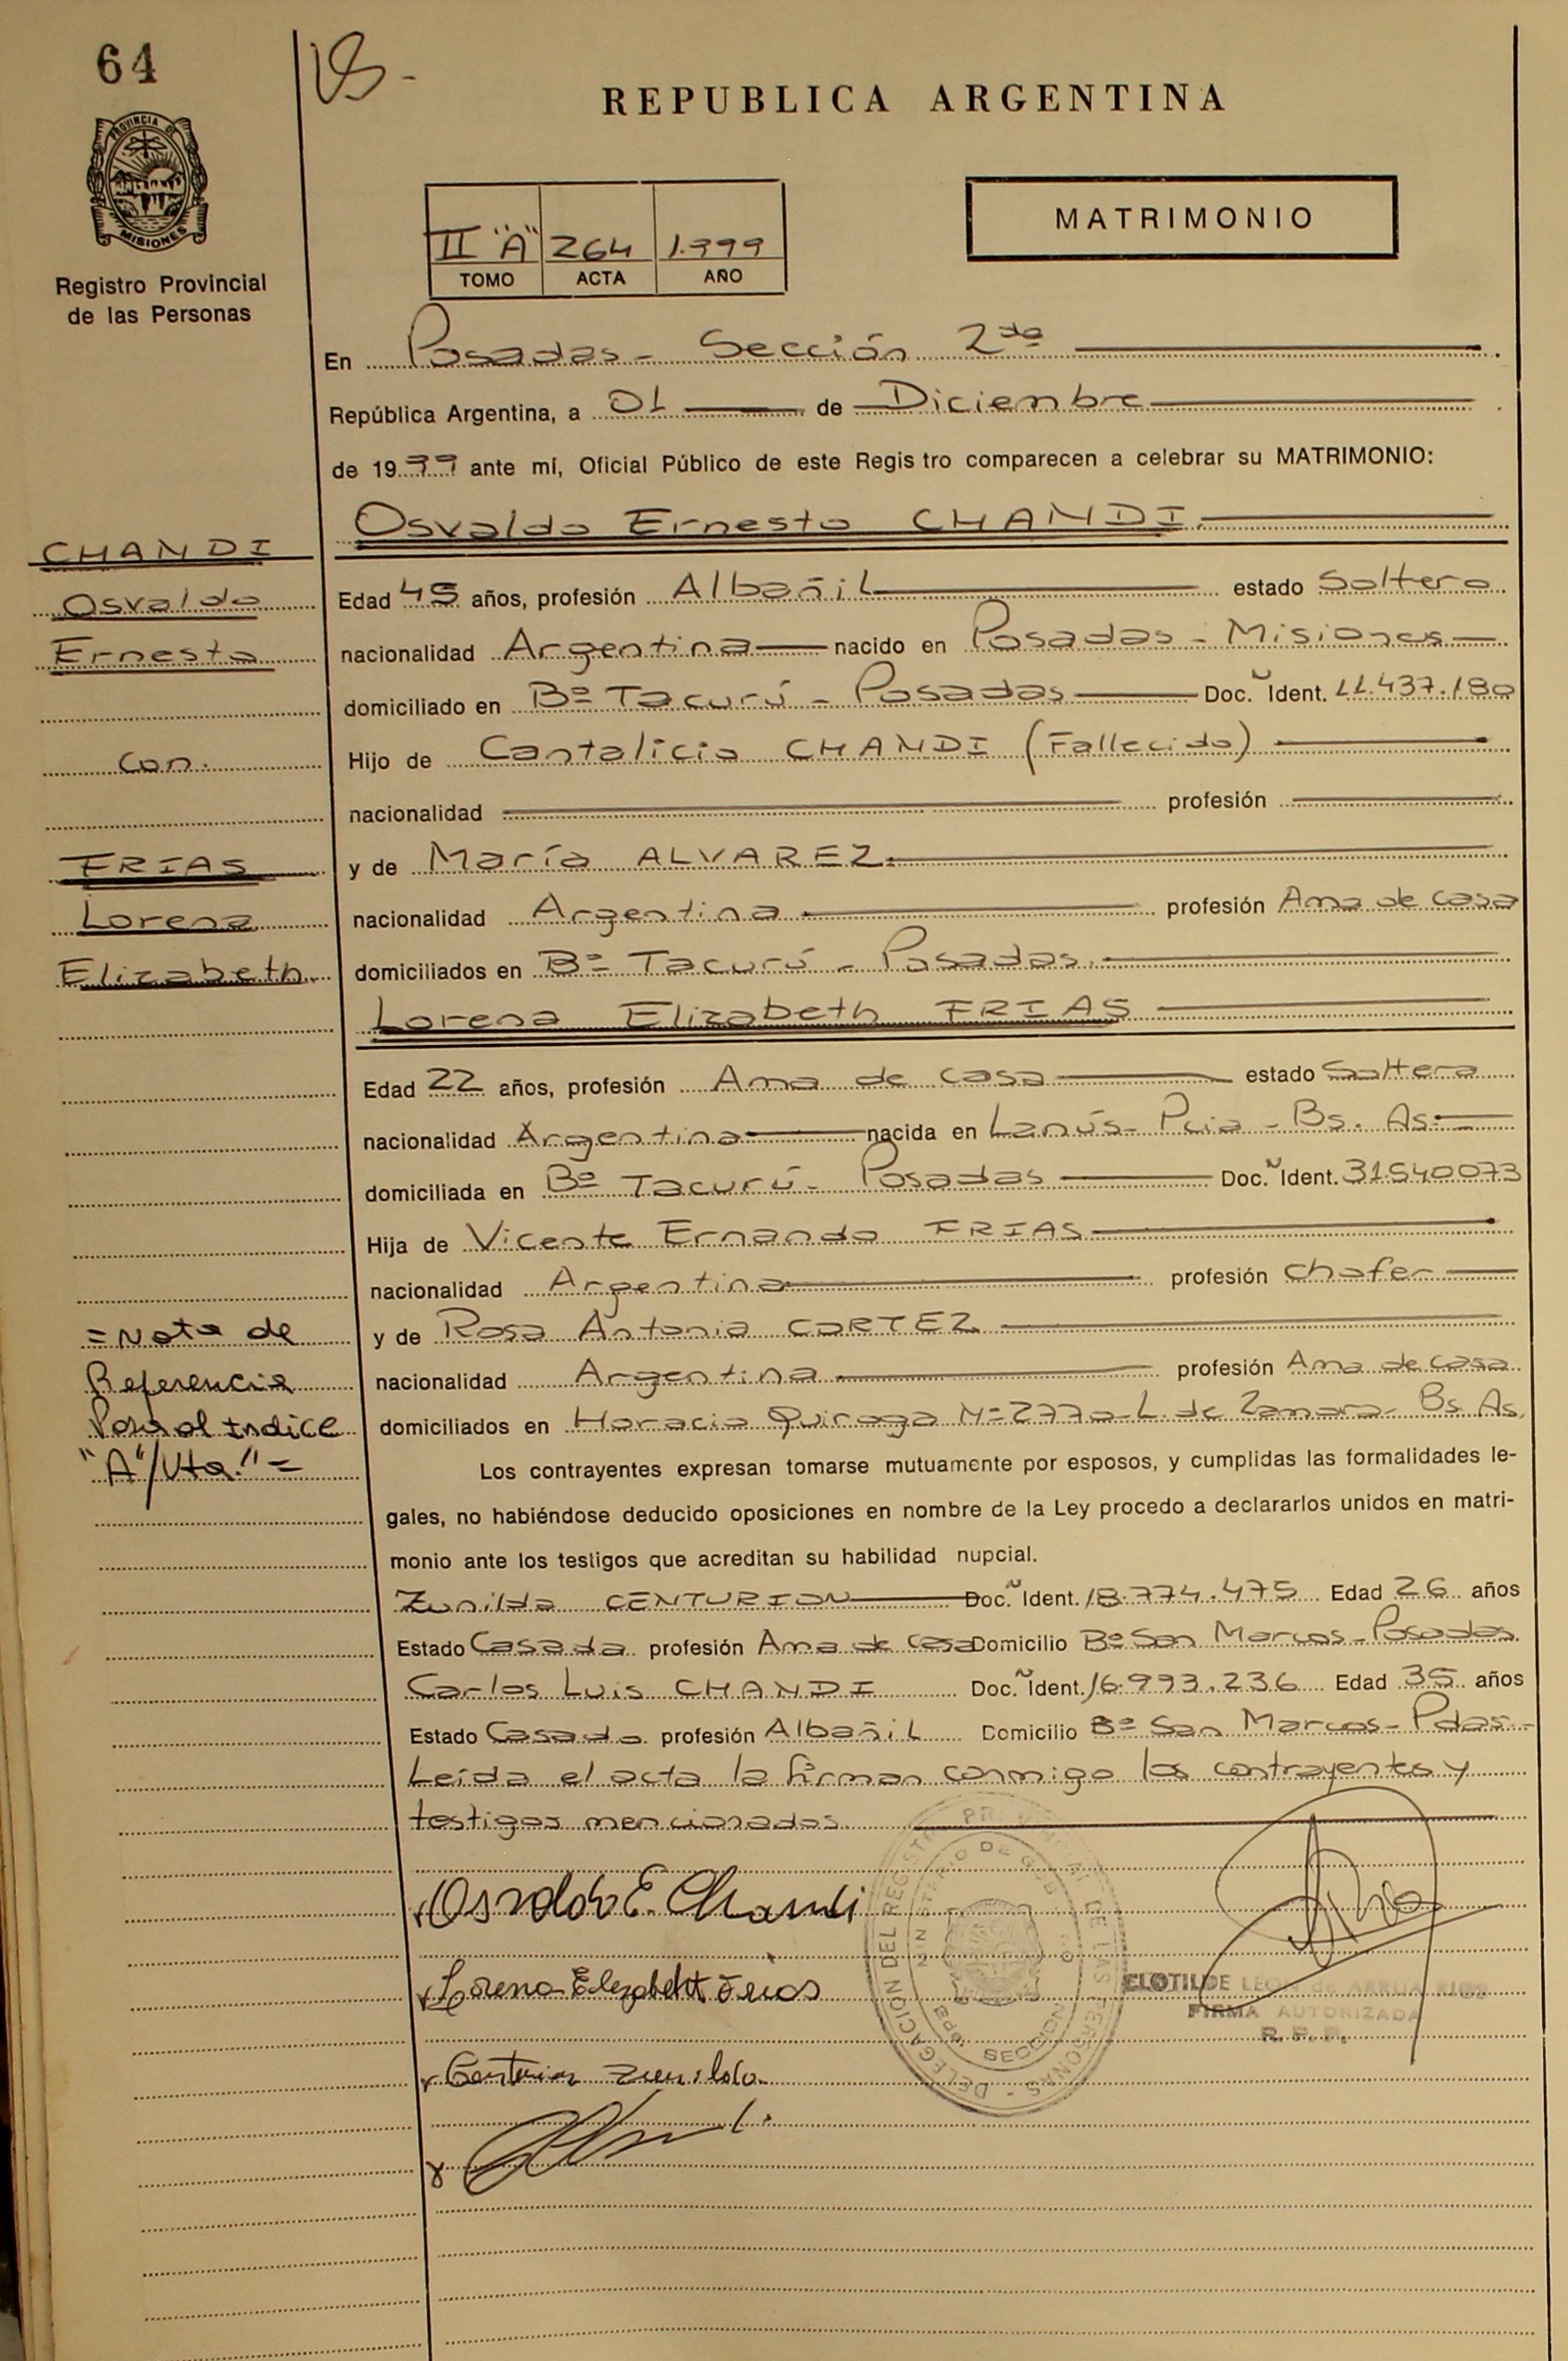 64
REPUBLICA ARGENTINA
PROVINCIA DE
MISIONES
Registro Provincial
de las Personas
II "A" 264 1.999
TOMO ACTA AÑO
MATRIMONIO
En Posadas - Sección 2da
República Argentina, a 01 de Diciembre
de 1999 ante mí, Oficial Público de este Registro comparecen a celebrar su MATRIMONIO:
Osvaldo Ernesto CHANDI
CHANDI
Osvaldo
Ernesto
con.
FRIAS
Lorena
Elizabeth
Edad 45 años, profesión Albañil estado Soltero
nacionalidad Argentina nacido en Posadas - Misiones
domiciliado en Bº Tacurú - Posadas Doc. Ident. 11.437.180
Hijo de Cantalicio CHANDI (Fallecido)
nacionalidad profesión
y de María ALVAREZ.
nacionalidad Argentina profesión Ama de casa
domiciliados en Bº Tacurú - Posadas.
Lorena Elizabeth FRIAS
Edad 22 años, profesión Ama de casa estado Soltera
nacionalidad Argentina nacida en Lanús - Pcia - Bs. As.
domiciliada en Bº Tacurú - Posadas Doc. Ident. 31.540073
Hija de Vicente Ernando FRIAS
nacionalidad Argentina profesión Chofer
y de Rosa Antonia CORTEZ
nacionalidad Argentina profesión Ama de casa
domiciliados en Horacio Quiroga Nº 2770 - L. de Zamora - Bs As.
= Nota de
Referencia
Pasa al Indice
"A"/Vta." =
Los contrayentes expresan tomarse mutuamente por esposos, y cumplidas las formalidades le-
gales, no habiéndose deducido oposiciones en nombre de la Ley procedo a declararlos unidos en matri-
monio ante los testigos que acreditan su habilidad nupcial.
Zunilda CENTURION Doc. Ident. 18.774.475 Edad 26 años
Estado Casada profesión Ama de casa Domicilio Bº San Marcos - Posadas.
Carlos Luis CHANDI Doc. Ident. 16.993.236 Edad 35 años
Estado Casado profesión Albañil Domicilio Bº San Marcos - Pdas -
Leída el acta la firman conmigo los contrayentes y
testigos mencionados.
Osvaldo E. Chandi
Lorena Elizabeht Frias
Centurion Zunilda
DELEGACION DEL REGISTRO PROVINCIAL DE LAS PERSONAS
MINISTERIO DE GOB
SECCION
CLOTILDE
FIRMA AUTORIZADA
R. P. P.